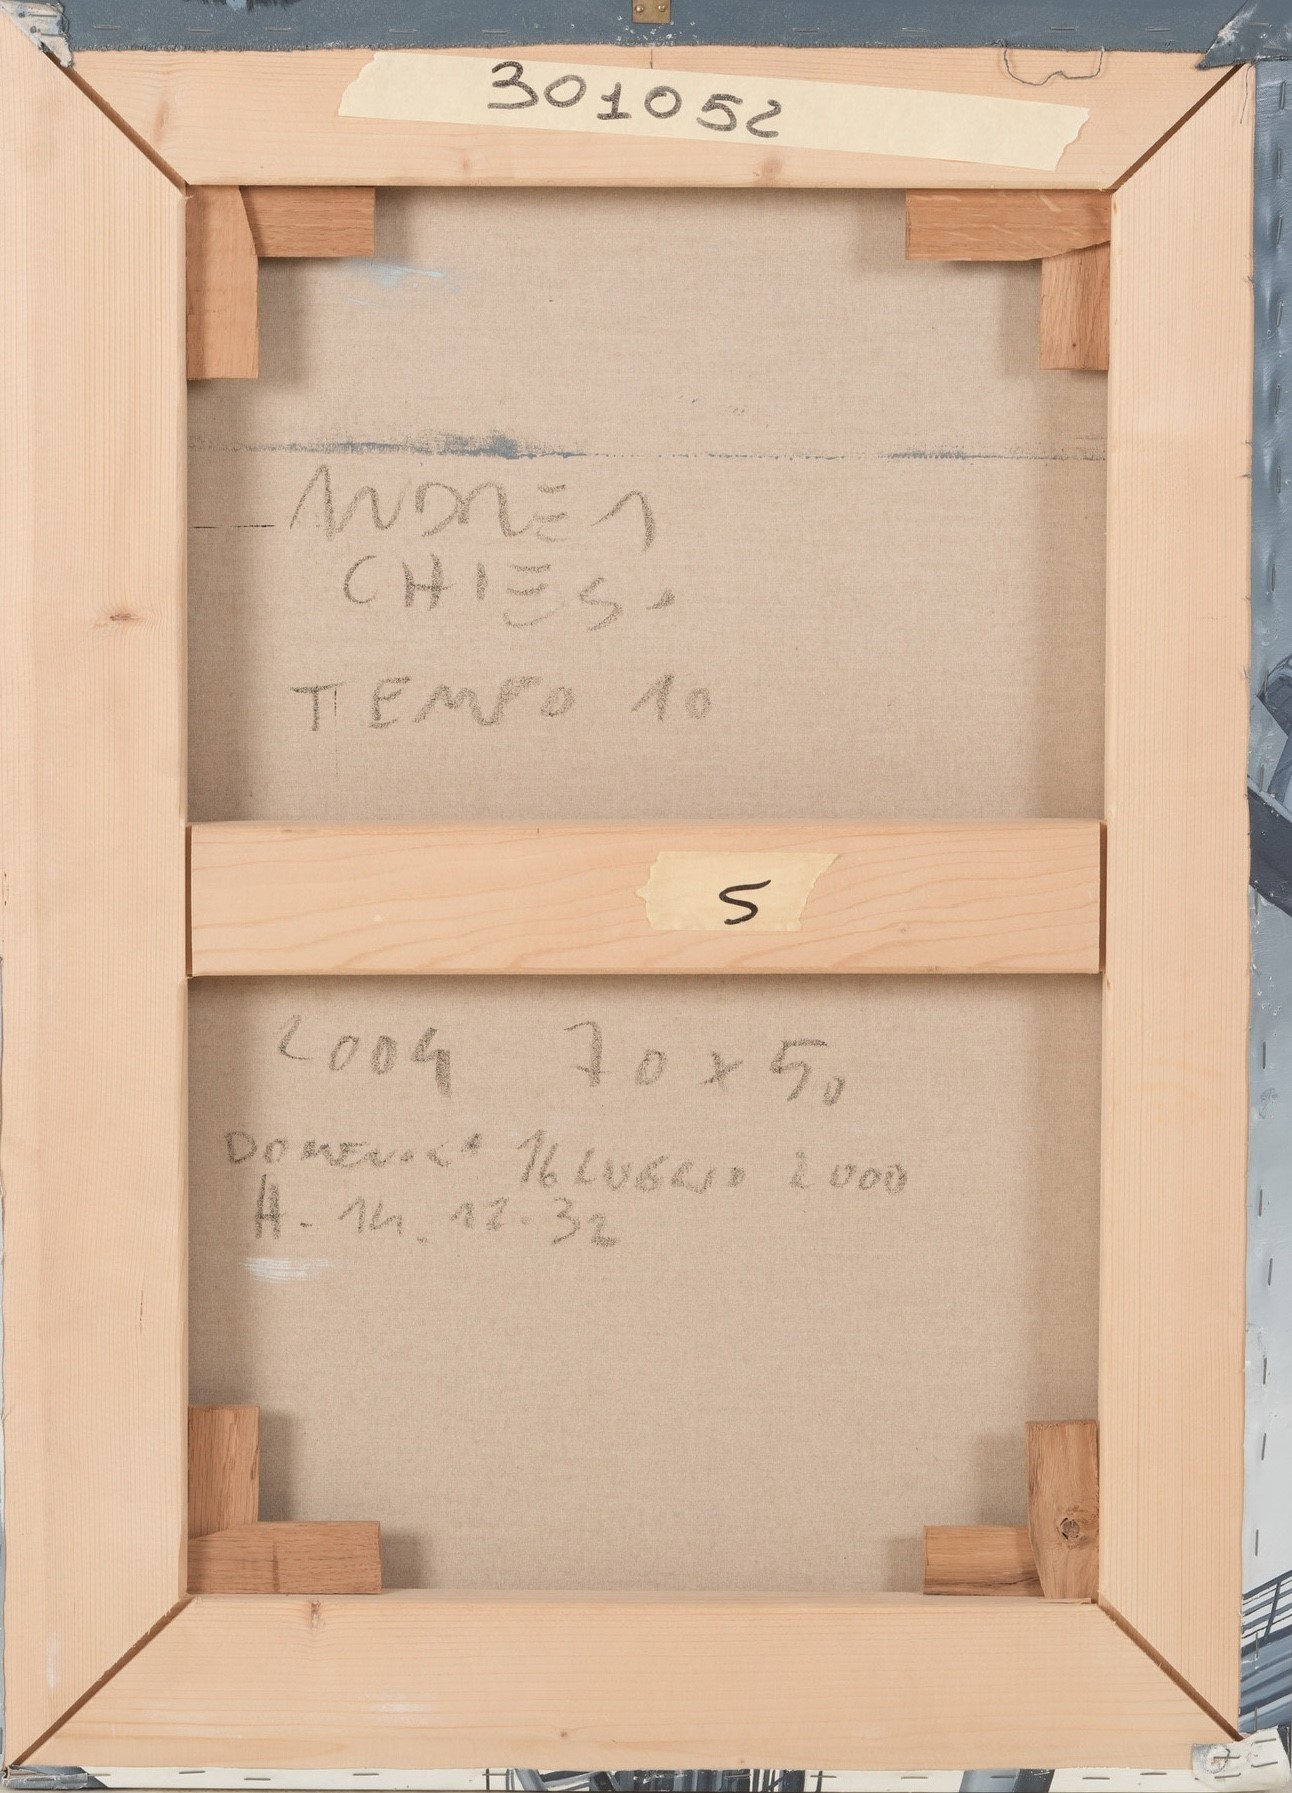 301052
ANDREA
CHIESI
TEMPO 10
5
2004 70 x 50
DOMENICA 16 LUGLIO 2000
H. 14. 12. 32